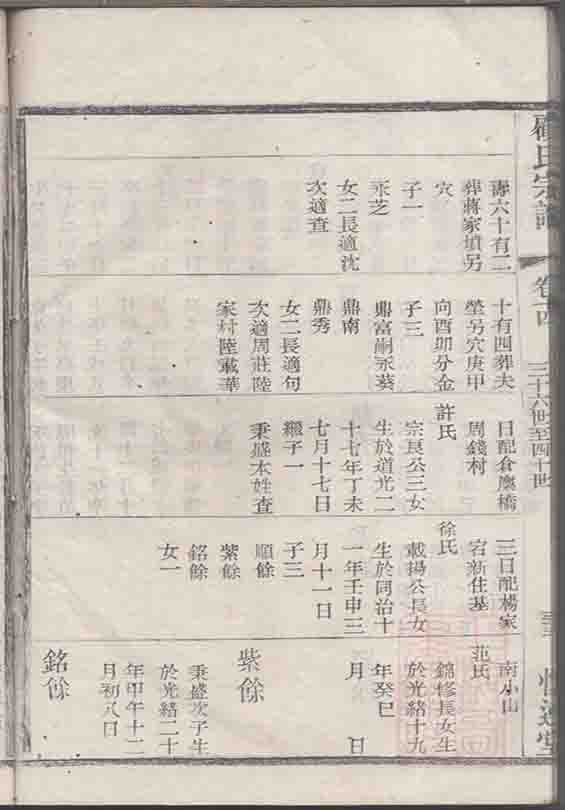 氏宗譜
卷十四
三十六世至四十世
壽六十有二
葬蔣家墳另
穴
子一
永芝
女二長適沈
次適查
十有四葬夫
塋另穴庚甲
向酉卯分金
子三
鼎富嗣永葵
鼎南
鼎秀
女二長適句
次適周莊陸
家村陸載華
日配倉廩橋
周錢村
許氏
宗良公三女
生於道光二
十七年丁未
七月十七日
繼子一
秉盛本姓查
三日配楊家
宕新住基
徐氏
載揚公長女
生於同治十
一年壬申三
月十一日
子三
順餘
紫餘
銘餘
女一
南小山
范氏
錦修長女生
於光緒十九
年癸巳
月 日
紫餘
秉盛次子生
於光緒二十
年甲午十二
月初八日
銘餘